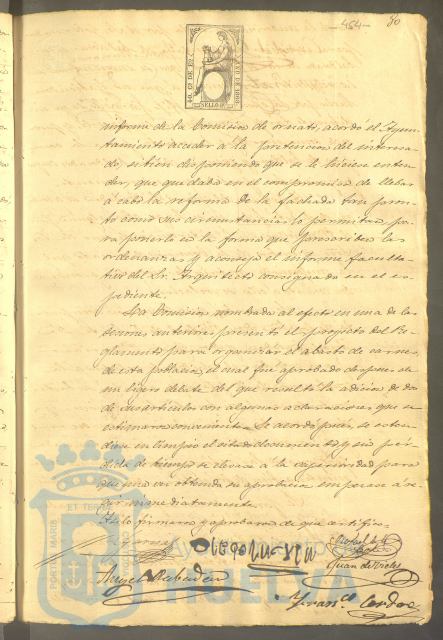 -464-
80
SELLO
informe de la Comision de ornato, acordó el Ayun-
tamiento acceder á la pretencion del interesa-
do, si bien disponiendo que se le hiciese enten-
der, que quedaba en el compromiso de llebar
á cabo la reforma de la fachada tan pron-
to como sus circunstancias lo permitan pa-
ra ponerla en la forma que prescriben las
ordenanzas y aconseja el informe faculta-
tivo del Sr. Arquitecto consignado en el es-
pediente.
La Comision nombrada al efecto en una de las
sesiones anteriores presentó el proyecto del Re-
glamento para organizar el abasto de carnes
de esta poblacion, el cual fué aprobado despues de
un ligero debate del que resultó la adicion de dos
de sus articulos con algunas aclaraciones que se
estimaron convenientes. Se acordó pues, se esten-
diese en limpio el citado documento, y sin pér-
dida de tiempo se elevase á la superioridad para
que una vez obtenida su aprobacion empezase á re-
gir inmediatamente.
Asi lo firmaron y aprobaron de que certifico.
Juan de
Miguel Rabadan
Franco
PORTUS MARIS ET TERRAE CUSTODIA
Ayuntamiento de
HUELVA